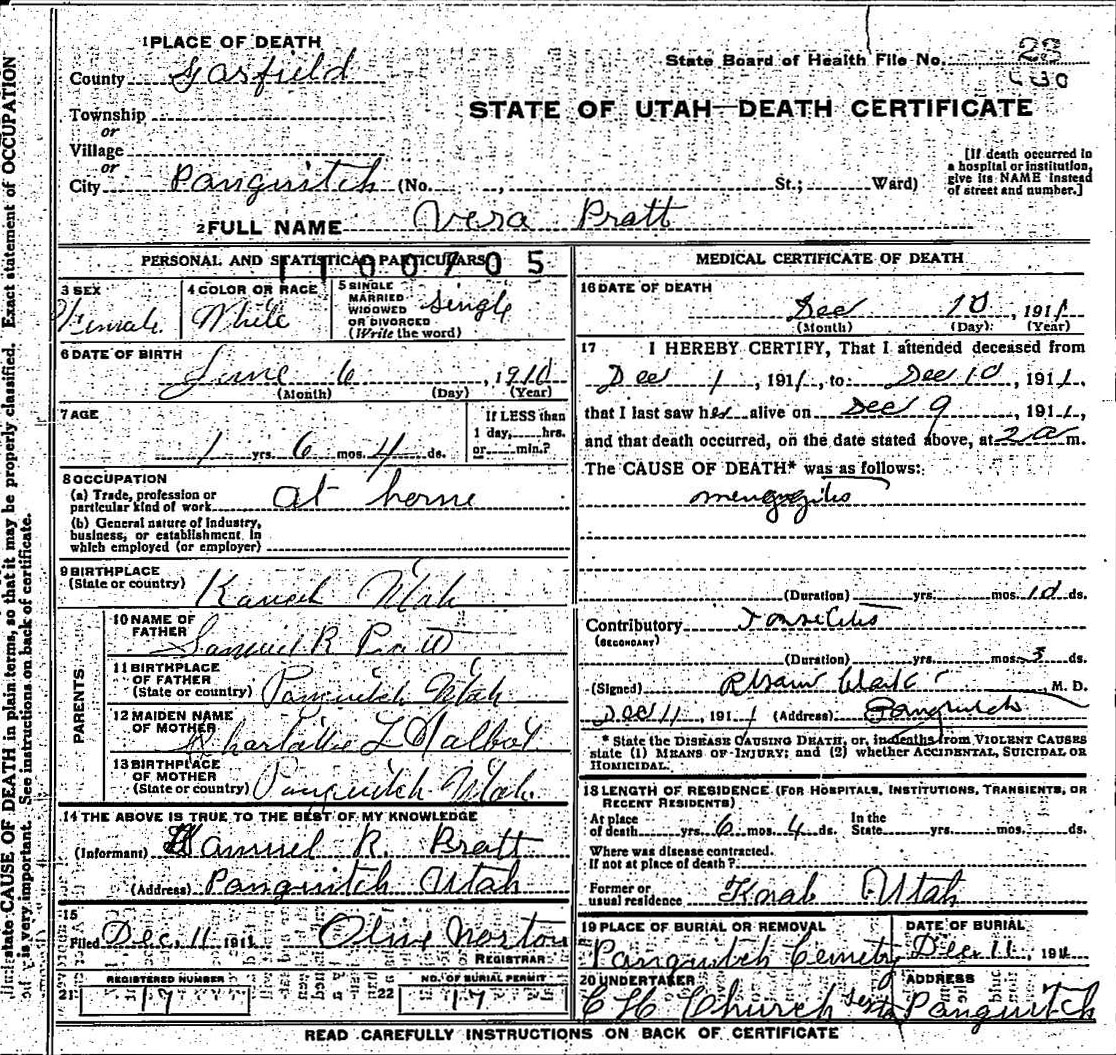 1 PLACE OF DEATH
County Garfield
State Board of Health File No. 23
STATE OF UTAH—DEATH CERTIFICATE
Township
or
Village
or
City Panguitch (No. , St.; Ward)
[If death occurred in
a hospital or institution,
give its NAME instead
of street and number.]
2 FULL NAME Vera Pratt
PERSONAL AND STATISTICAL PARTICULARS
1100705
3 SEX
Female
4 COLOR OR RACE
White
5 SINGLE
MARRIED
WIDOWED
OR DIVORCED
(Write the word)
Single
6 DATE OF BIRTH
June 6, 1910
(Month) (Day) (Year)
7 AGE
1 yrs. 6 mos. 4 ds.
If LESS than
1 day, hrs.
or min.?
8 OCCUPATION
(a) Trade, profession or
particular kind of work at home
(b) General nature of industry,
business, or establishment in
which employed (or employer)
9 BIRTHPLACE
(State or country) Utah
PARENTS
10 NAME OF
FATHER Samuel R Pratt
11 BIRTHPLACE
OF FATHER
(State or country) Panguitch Utah
12 MAIDEN NAME
OF MOTHER Talbot
13 BIRTHPLACE
OF MOTHER
(State or country) Panguitch Utah
14 THE ABOVE IS TRUE TO THE BEST OF MY KNOWLEDGE
(Informant) Samuel R. Pratt
(Address) Panguitch Utah
15
Filed Dec. 11 1911 Olive Norton
REGISTRAR
REGISTERED NUMBER
21 17
NO. OF BURIAL PERMIT
22 17
MEDICAL CERTIFICATE OF DEATH
16 DATE OF DEATH
Dec 10, 1911
(Month) (Day) (Year)
17 I HEREBY CERTIFY, That I attended deceased from
Dec 1, 1911, to Dec 10, 1911,
that I last saw her alive on Dec 9, 1911,
and that death occurred, on the date stated above, at 2 a m.
The CAUSE OF DEATH* was as follows:
(Duration) yrs. mos. 10 ds.
Contributory Tonsilitis
(SECONDARY)
(Duration) yrs. mos. 3 ds.
(Signed) Clark, M. D.
Dec 11, 1911 (Address) Panguitch
* State the DISEASE CAUSING DEATH, or, in deaths from VIOLENT CAUSES
state (1) MEANS OF INJURY; and (2) whether ACCIDENTAL, SUICIDAL OR
HOMICIDAL.
18 LENGTH OF RESIDENCE (FOR HOSPITALS, INSTITUTIONS, TRANSIENTS, OR
RECENT RESIDENTS)
At place
of death yrs. 6 mos. 4 ds.
In the
State yrs. mos. ds.
Where was disease contracted.
If not at place of death?
Former or
usual residence Utah
19 PLACE OF BURIAL OR REMOVAL
Panguitch Cemetry
DATE OF BURIAL
Dec. 11, 1911
20 UNDERTAKER
C H Church
ADDRESS
Panguitch
READ CAREFULLY INSTRUCTIONS ON BACK OF CERTIFICATE
state CAUSE OF DEATH in plain terms, so that it may be properly classified. Exact statement of OCCUPATION
is very important. See instructions on back of certificate.